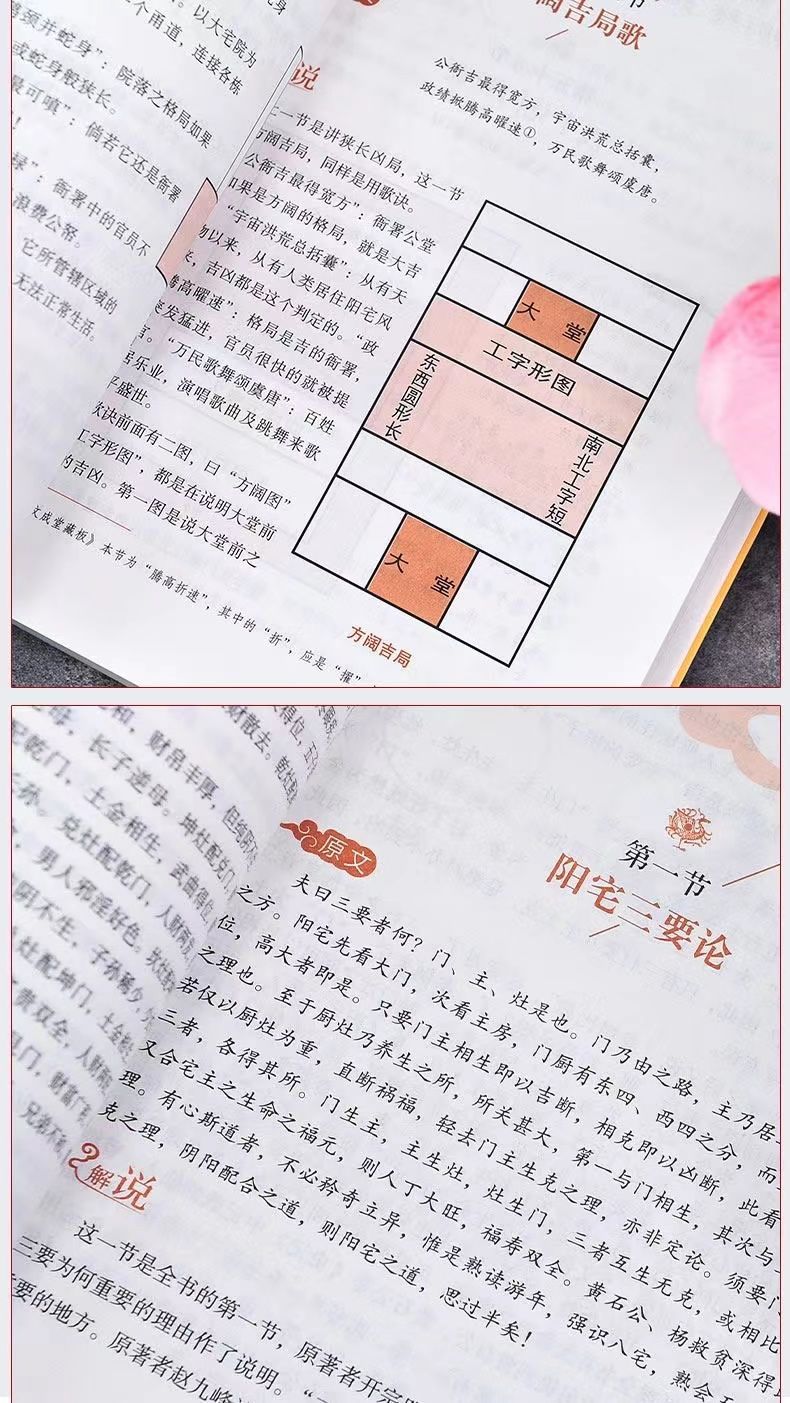 颈并蛇身”：院落之格局如果
或蛇身般狭长。
最可嗔”：倘若它还是衙署
衙署中的官员不
浪费公帑。
它所管辖区域的
无法正常生活。
个甬道，连接各栋
以大宅院为
阔吉局歌
公衙吉最得宽方，宇宙洪荒总括囊，
政绩掀腾高曜速①，万民歌舞颂虞唐。
说
一节是讲狭长凶局，这一节
方阔吉局，同样是用歌诀。
公衙吉最得宽方”：衙署公堂
如果是方阔的格局，就是大吉
“宇宙洪荒总括囊”：从有天
物以来，从有人类居住阳宅风
来，吉凶都是这个判定的。“政
腾高曜速”：格局是吉的衙署，
突发猛进，官员很快的就被提
“万民歌舞颂虞唐”：百姓
居乐业，演唱歌曲及跳舞来歌
平盛世。
歌诀前面有二图，曰“方阔图”
工字形图”，都是在说明大堂前
的吉凶。第一图是说大堂前之
文成堂藏板》本节为“腾高折速”，其中的“折”，应是“擢”
大堂
工字形图
东西圆形长
南北工字短
大堂
方阔吉局
和，财帛丰厚，但
长子逆母。坤灶配兑门，
配乾门，土金相生，武曲得位，
兑灶配乾门，人财两
男人邪淫好色。
阴不生，子孙稀少，
灶配坤门，土金
贵双全，人财两
门，财富广
兄弟不
第一节
阳宅三要论
原文
夫曰三要者何？门、主、灶是也。门乃由之路，主乃居
之方。阳宅先看大门，次看主房，门厨有东四、西四之分，而
位，高大者即是。只要门主相生即以吉断，相克即以凶断，此看
之理也。至于厨灶乃养生之所，所关甚大，第一与门相生，其次与
若仅以厨灶为重，直断祸福，轻去门主生克之理，亦非定论。须要门
三者，各得其所。门生主，主生灶，灶生门，三者互生无克，或相比
又合宅主之生命之福元，则人丁大旺，福寿双全。黄石公、杨救贫深得
理。有心斯道者，不必矜奇立异，惟是熟读游年，强识八宅，熟会
克之理，阴阳配合之道，则阳宅之道，思过半矣！
解说
这一节是全书的第一节，原著者开宗
三要为何重要的理由作了说明。
要的地方。原著者赵九峰